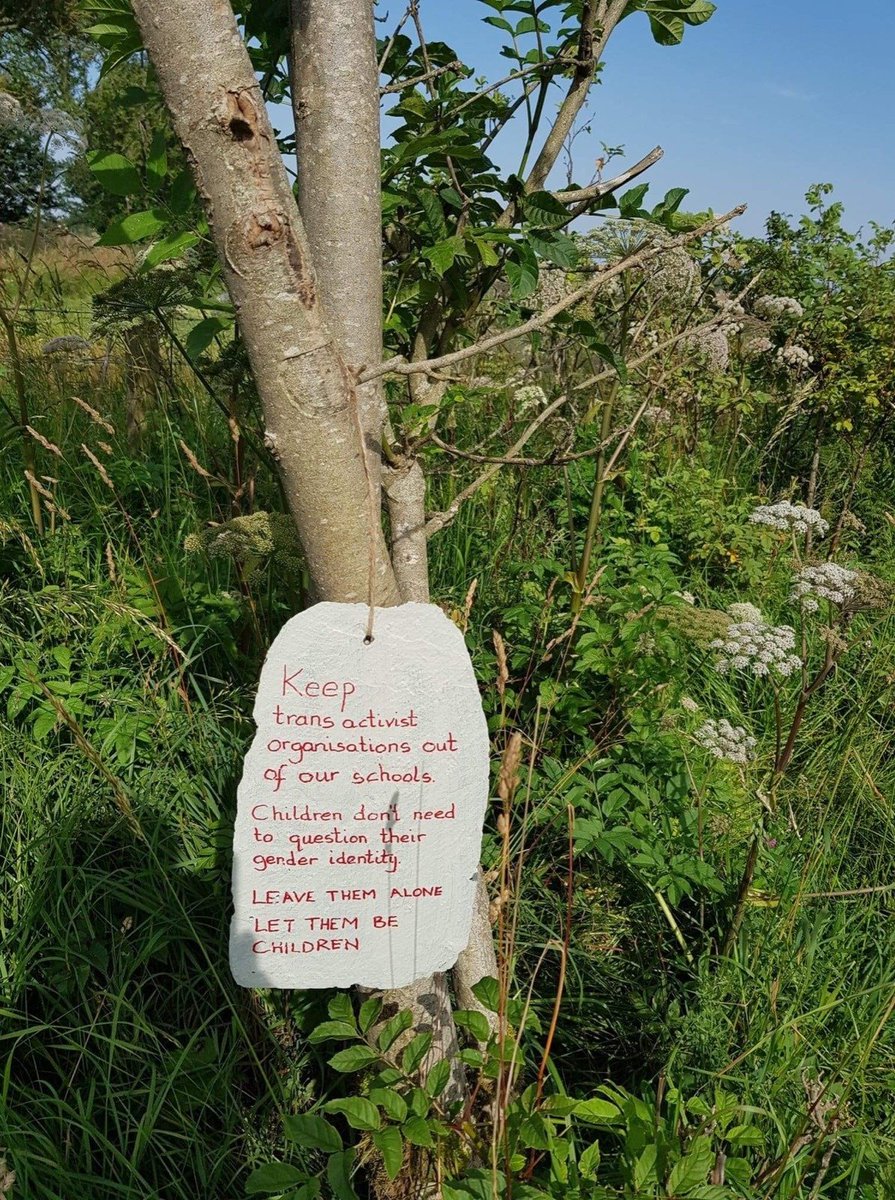 Keep
trans activist
organisations out
of our schools.
Children don't need
to question their
gender identity.
LEAVE THEM ALONE
LET THEM BE
CHILDREN